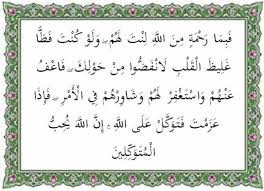 فَبِمَا رَحْمَةٍ مِنَ اللَّهِ لِنْتَ لَهُمْ ۖ وَلَوْ كُنْتَ فَظًّا
غَلِيظَ الْقَلْبِ لَانْفَضُّوا مِنْ حَوْلِكَ ۖ فَاعْفُ
عَنْهُمْ وَاسْتَغْفِرْ لَهُمْ وَشَاوِرْهُمْ فِي الْأَمْرِ ۖ فَإِذَا
عَزَمْتَ فَتَوَكَّلْ عَلَى اللَّهِ ۚ إِنَّ اللَّهَ يُحِبُّ
الْمُتَوَكِّلِينَ